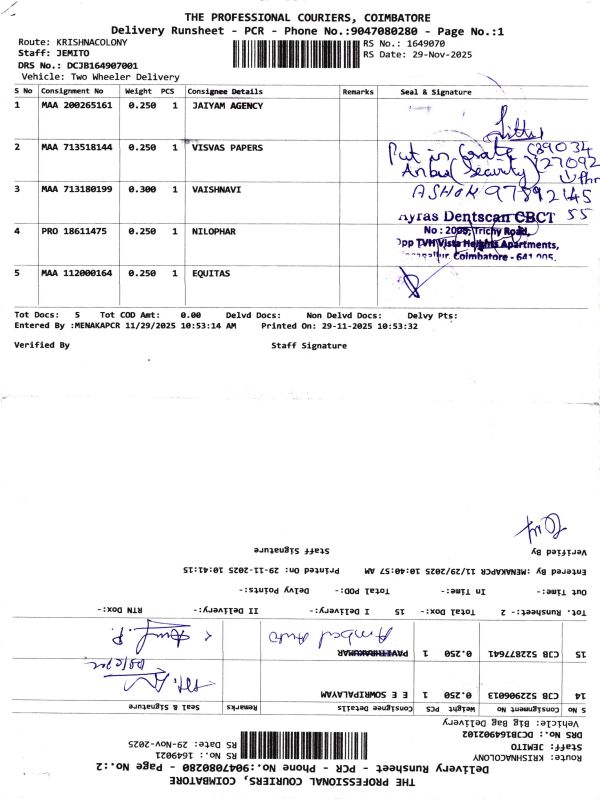 THE PROFESSIONAL COURIERS, COIMBATORE
Delivery Runsheet - PCR - Phone No.:9047080280 - Page No.:1
Route: KRISHNACOLONY
Staff: JEMITO
DRS No.: DCJB164907001
Vehicle: Two Wheeler Delivery
RS No.: 1649070
RS Date: 29-Nov-2025
S No Consignment No Weight PCS Consignee Details Remarks Seal & Signature
1 MAA 200265161 0.250 1 JAIYAM AGENCY
2 MAA 713518144 0.250 1 VISVAS PAPERS
Put in Grate
Anbu (Security)
3 MAA 713180199 0.300 1 VAISHNAVI
ASHOK 97892145
55
4 PRO 18611475 0.250 1 NILOPHAR
Dentscan CBCT
Trichy Road,
Opp TVH Vista Heights Apartments,
Coimbatore - 641 005.
5 MAA 112000164 0.250 1 EQUITAS
Tot Docs: 5 Tot COD Amt: 0.00 Delvd Docs: Non Delvd Docs: Delvy Pts:
Entered By :MENAKAPCR 11/29/2025 10:53:14 AM Printed On: 29-11-2025 10:53:32
Verified By Staff Signature
THE PROFESSIONAL COURIERS, COIMBATORE
Delivery Runsheet - PCR - Phone No.:9047080280 - Page No.:2
Route: KRISHNACOLONY
Staff: JEMITO
DRS No.: DCJB164902102
Vehicle: Big Bag Delivery
RS No.: 1649021
RS Date: 29-Nov-2025
S No Consignment No Weight PCS Consignee Details Remarks Seal & Signature
14 CJB 522906013 0.250 1 E E E SOMRIPALAYAM
15 CJB 522877641 0.250 1 PAVITHRAKUMAR
Ambal Auto
Tot. Runsheet:- 2 Total Dox:- 15 I Delivery:- II Delivery:- RTN Dox:-
Out Time:- In Time:- Total POD:- Delvy Points:-
Entered By :MENAKAPCR 11/29/2025 10:40:57 AM Printed On: 29-11-2025 10:41:15
Verified By Staff Signature